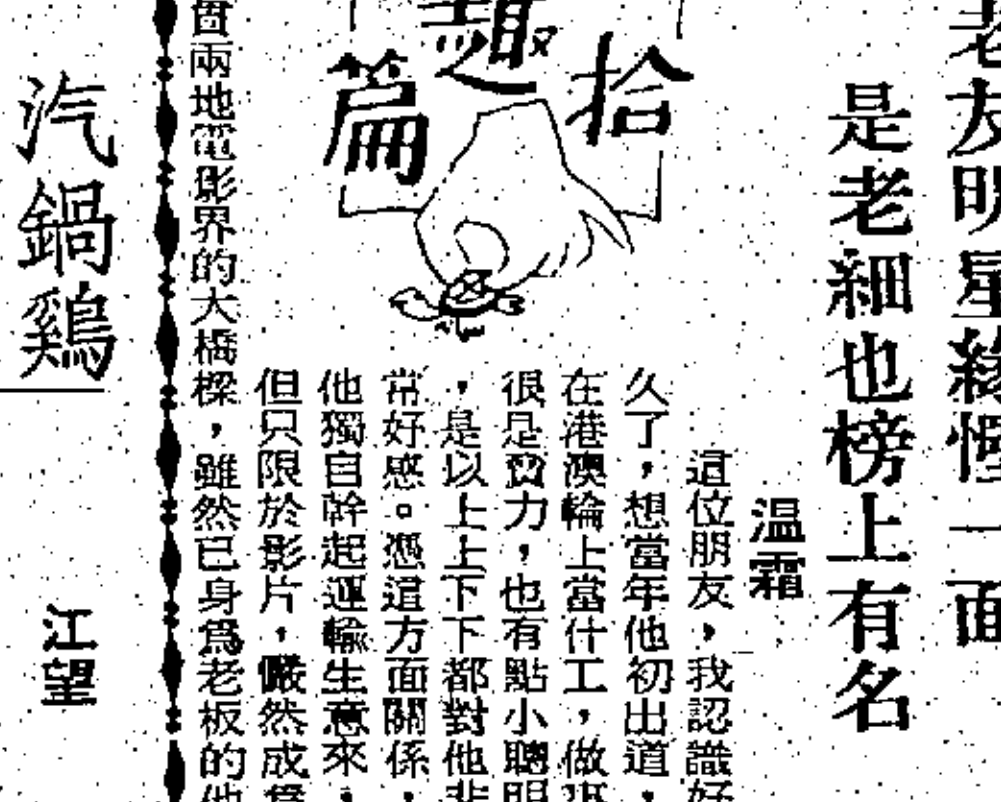 老友明星緣慳一面
是老細也榜上有名
拾趣篇
温霜
這位朋友，我認識好
久了，想當年他初出道，
在港澳輪上當什工，做
很是賣力，也有點小聰明
，是以上上下下都對他非
常好感。憑這方面關係，
他獨自幹起運輸生意來，
但只限於影片，儼然成爲
兩地電影界的大橋樑，雖然已身爲老板的他
汽鍋鷄
江望